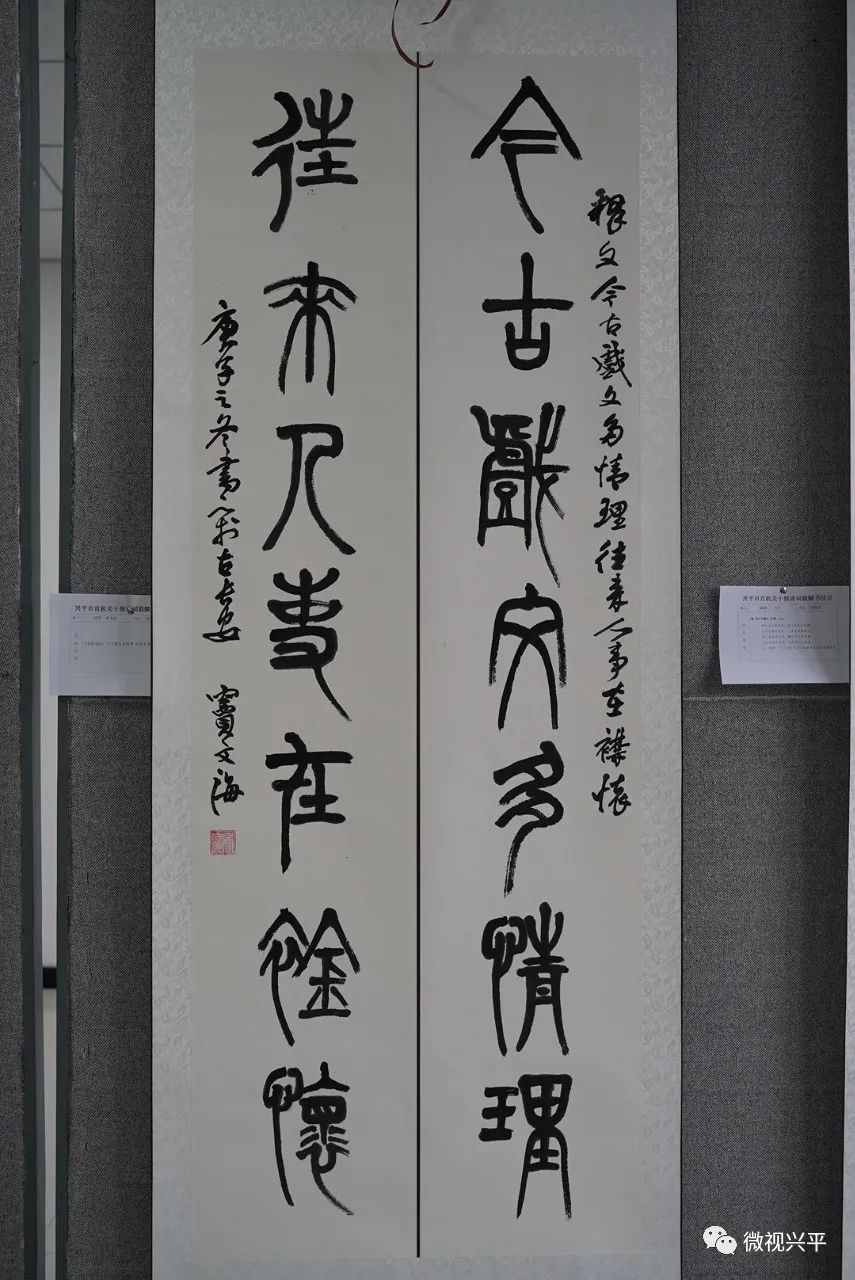 釋文今古戲文多情理往来人事在襟懷
今古戲文多情理
往來人事在襟懷
庚子之冬書於古長安 竇文海
兴平市直机关干部诗词联赋
兴平市直机关干部诗词联赋书法
微视兴平